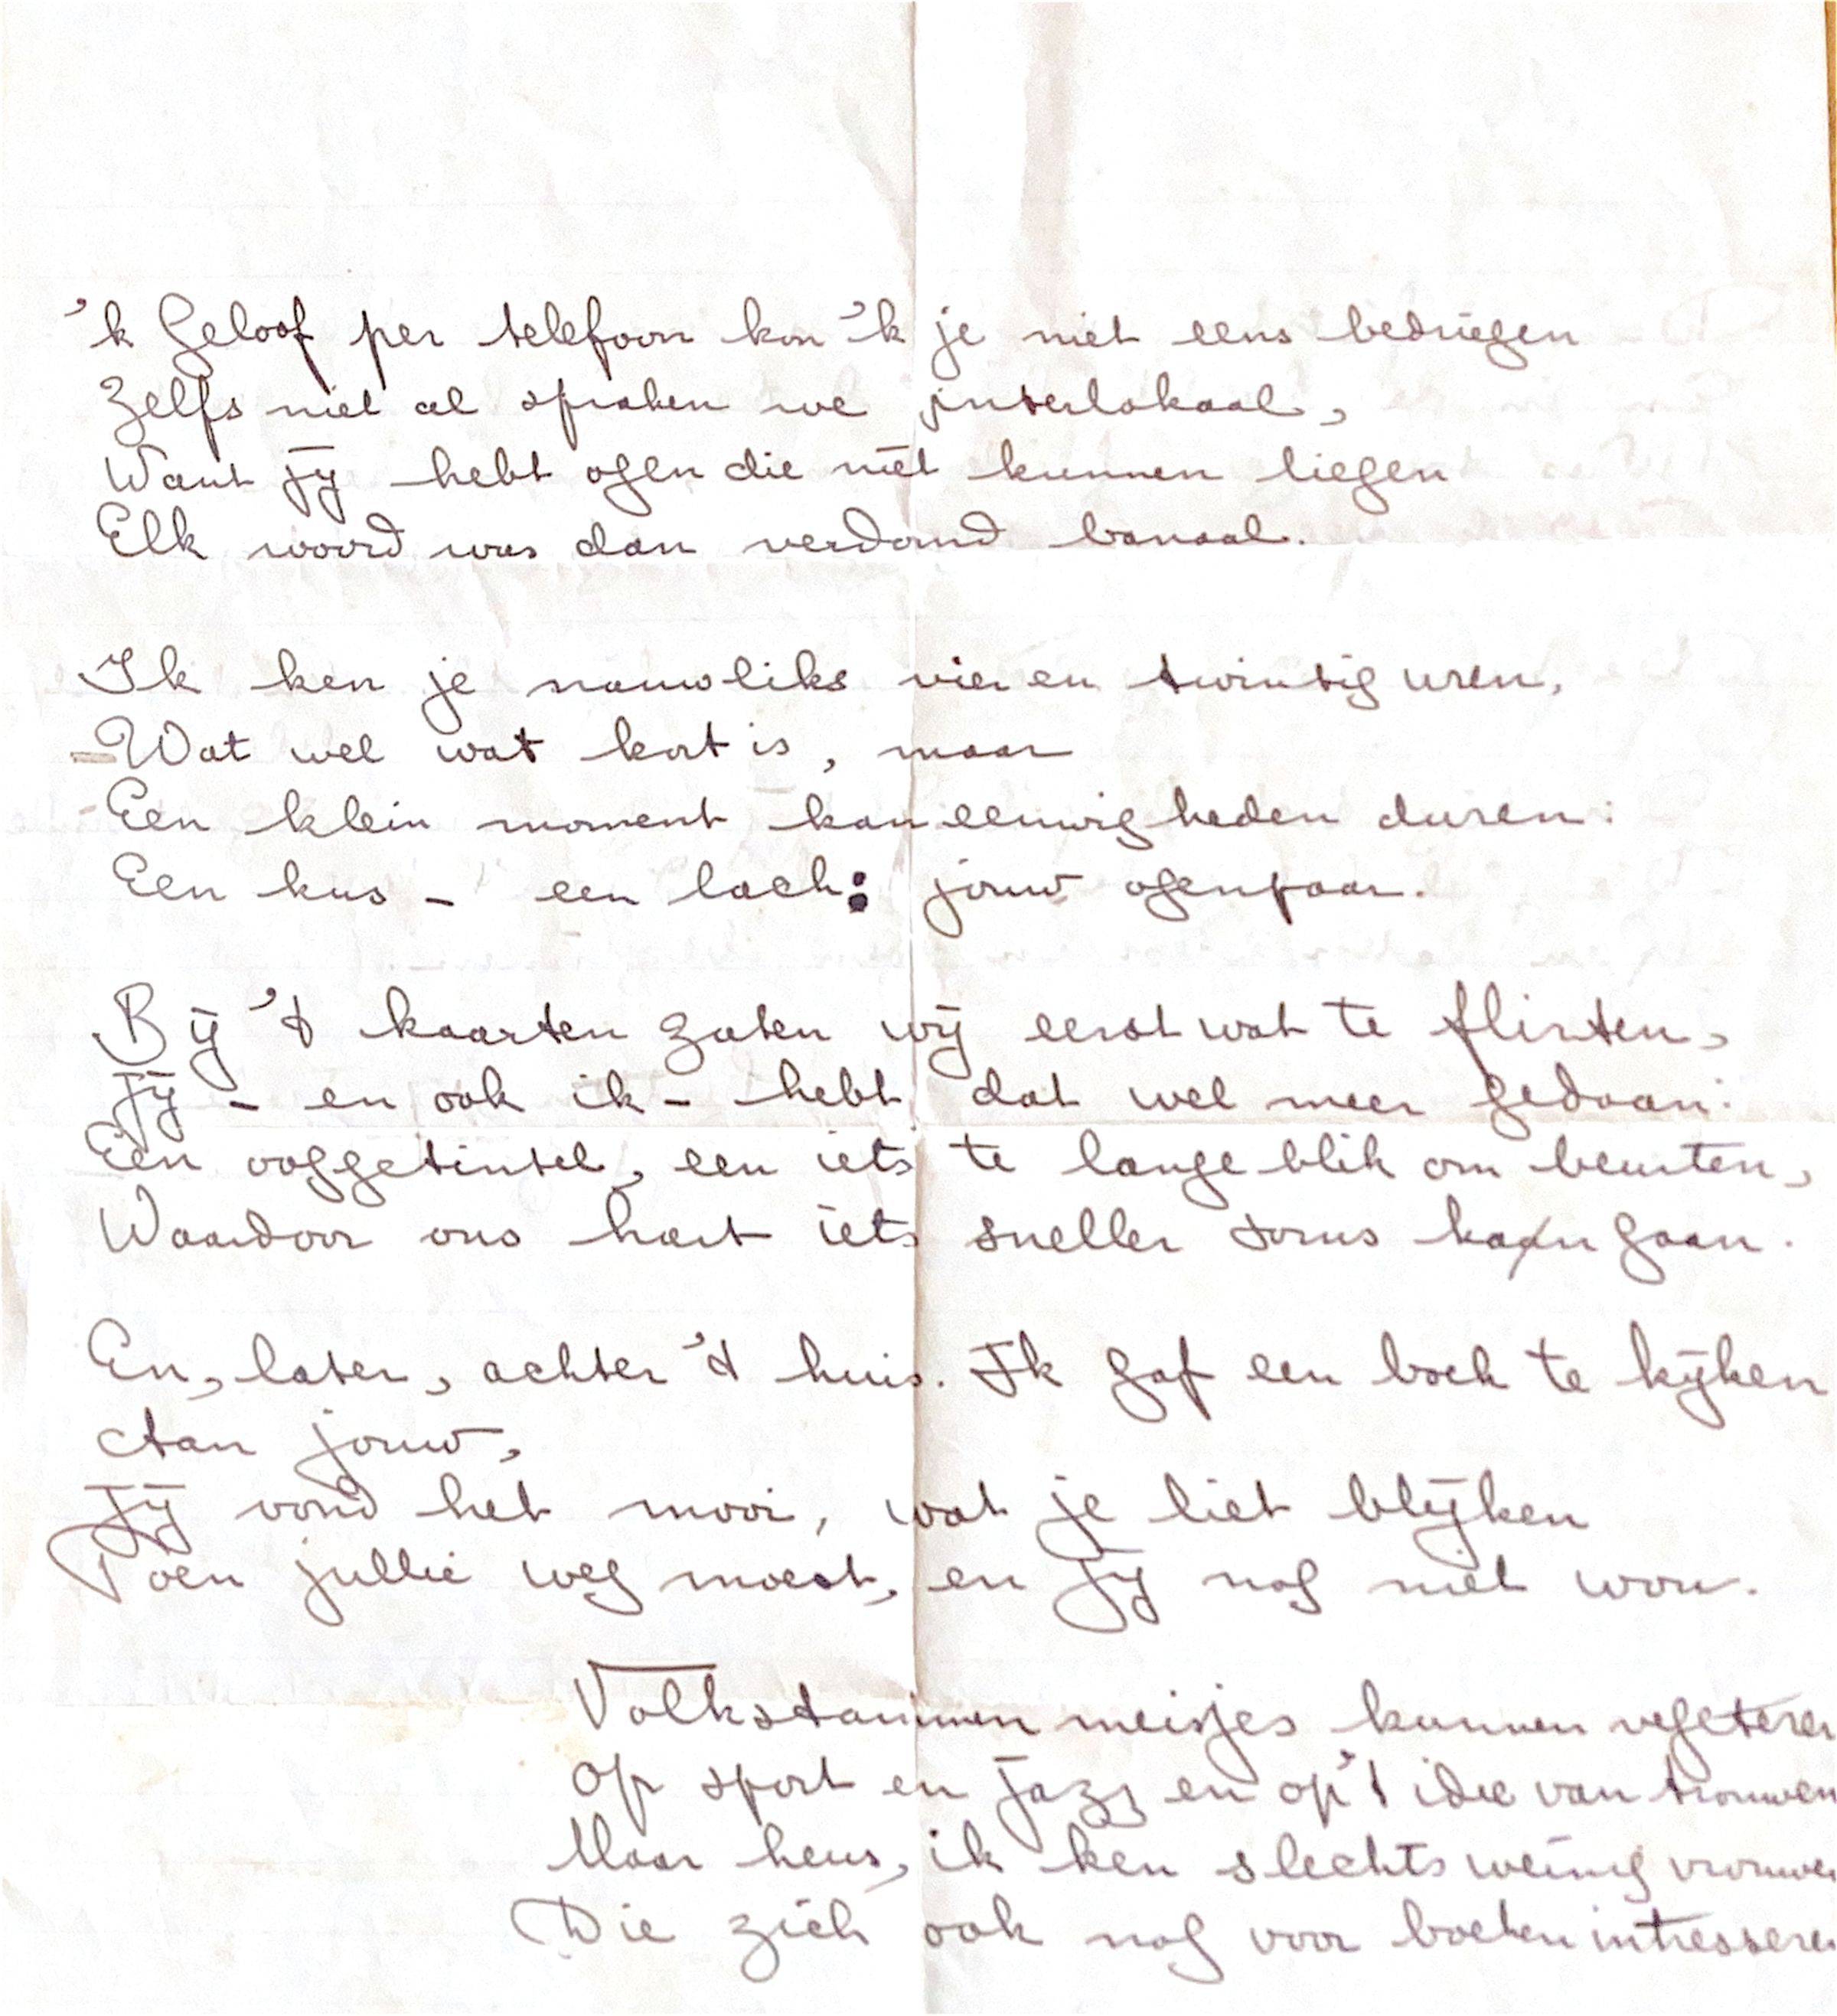 'k Geloof per telefoon kon 'k je niet eens bedriegen
Zelfs niet al spraken we interlokaal,
Want jij hebt ogen die niet kunnen liegen
Elk woord was dan verdomd banaal.
Ik ken je nauwliks vier en twintig uren,
Wat wel wat kort is, maar
Een klein moment kan eeuwigheden duren:
Een kus - een lach: jouw ogenpaar.
Bij 't kaarten zaten wij eerst wat te flirten,
Jij - en ook ik - hebt dat wel meer gedaan:
Een ooggetintel, een iets te lange blik om beurten,
Waardoor ons hart iets sneller soms kan gaan.
En, later, achter 't huis. Ik gaf een boek te kijken
Aan jouw,
Jij vond het mooi, wat je liet blijken
Toen jullie weg moest, en jij nog niet wou.
Volksstammen meisjes kunnen vegeteren
Op sport en jazz en op 't idee van trouwen
Maar heus, ik ken slechts weinig vrouwen
Die zich ook nog voor boeken intresseren